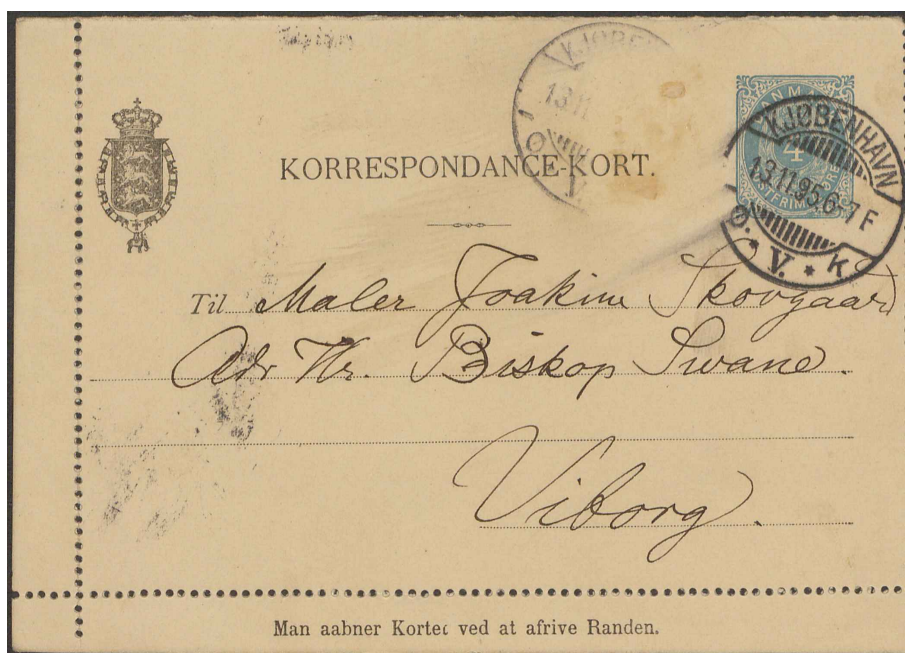 KJØBEN
13.11
Ø. V.
DANMARK
4
POSTFRIM
KJØBENHAVN
13.11.95.6-7F
Ø. V. * K
KORRESPONDANCE-KORT.
Til Maler Joakim Skovgaard
Adr Hr. Biskop Swane.
Viborg.
Man aabner Kortet ved at afrive Randen.